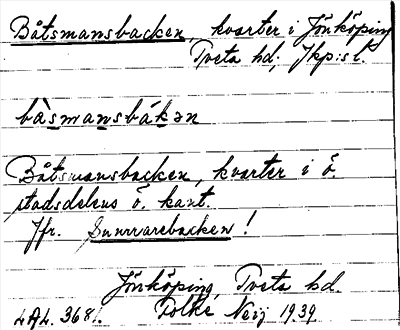 Båtsmansbacken, kvarter i Jönköping
Tveta hd; Jkp:s l.
bȧsmansbákən
Båtsmansbacken, kvarter i ö.
stadsdelens ö. kant.
Jfr. Sumrarebacken!
Jönköping, Tveta hd.
LAL. 368:. Folke Neij 1939